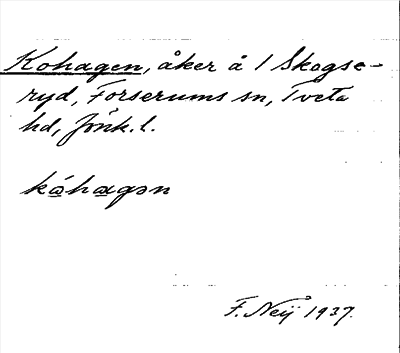 Kohagen, åker å 1 Skogse-
ryd, Forserums sn, Tveta
hd, Jönk. l.
kóhagən
F. Neij 1937.